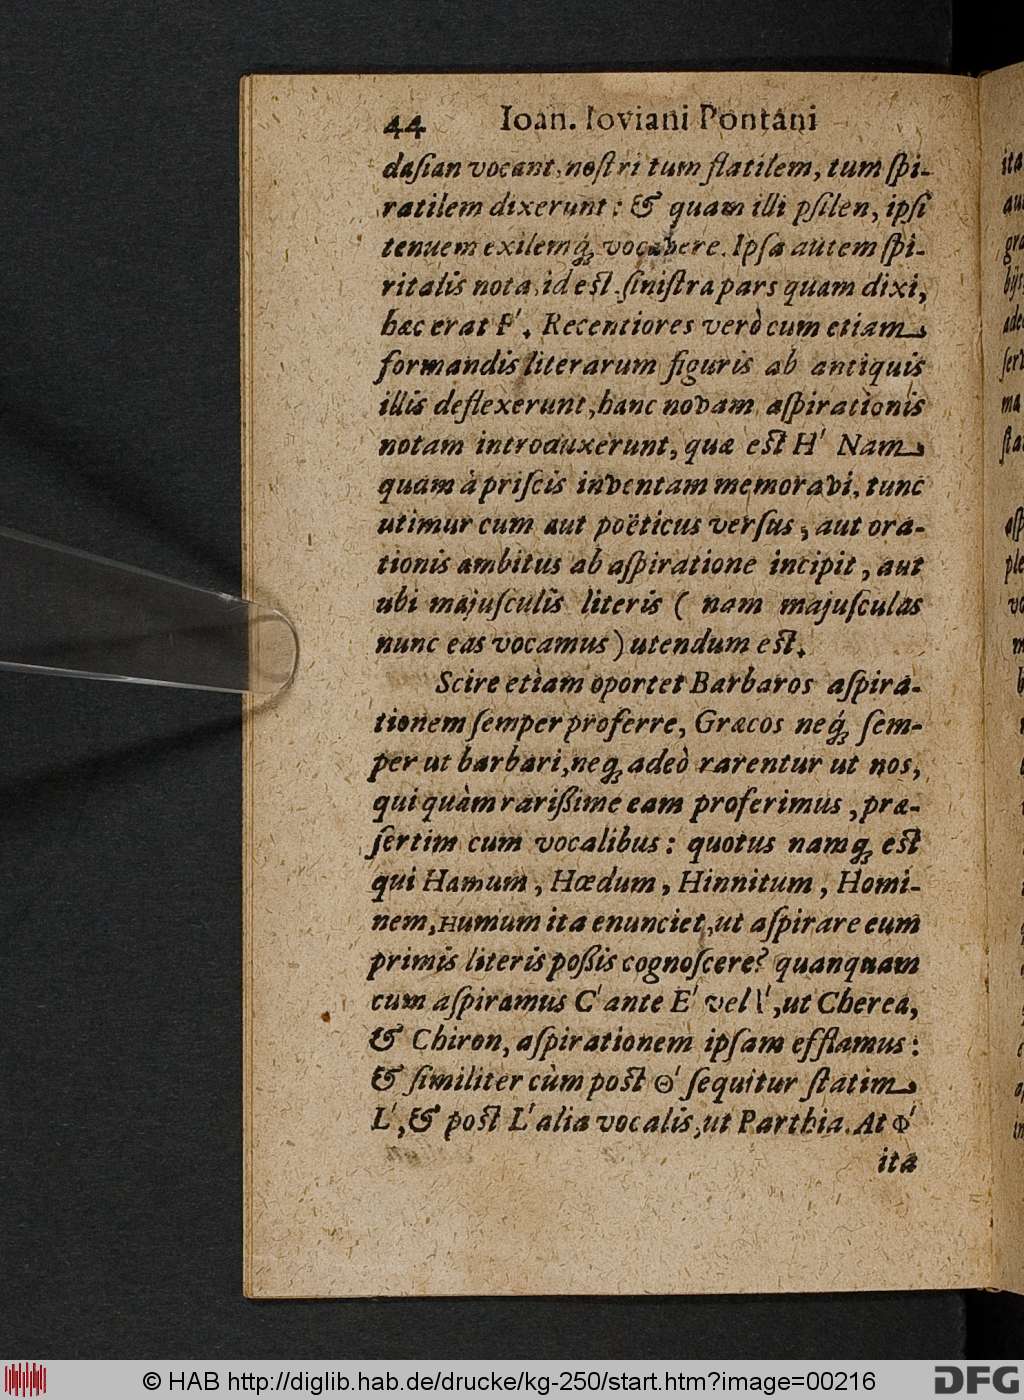 44 Ioan. Ioviani Pontani
daſian vocant, noſtri tum flatilem, tum ſpi-
ratilem dixerunt: & quam illi pſilen, ipſi
tenuem exilemq́ꝫ vocavere. Ipſa autem ſpi-
ritalis nota, id eſt. ſiniſtra pars quam dixi,
hæc erat F'. Recentiores verò cum etiam
formandis literarum figuris ab antiquis
illis deflexerunt, hanc novam aſpirationis
notam introduxerunt, quæ eſt H' Nam
quam à priſcis inventam memoravi, tunc
utimur cum aut poëticus verſus, aut ora-
tionis ambitus ab aſpiratione incipit, aut
ubi majuſculis literis ( nam majuſculas
nunc eas vocamus ) utendum eſt.
Scire etiam oportet Barbaros aſpira-
tionem ſemper proferre, Græcos neq́ꝫ ſem-
per ut barbari, neqꝫ adeò rarentur ut nos,
qui quàm rarißime eam proferimus, præ-
ſertim cum vocalibus: quotus namqꝫ eſt
qui Hamum, Hœdum, Hinnitum, Homi-
nem, Humum ita enunciet, ut aſpirare eum
primis literis poßis cognoſcere? quanquam
cum aſpiramus C' ante E' vel I', ut Cherea,
& Chiron, aſpirationem ipſam efflamus:
& ſimiliter cùm poſt Θ' ſequitur ſtatim
L', & poſt L' alia vocalis, ut Parthia. At Φ'
ita
© HAB http://diglib.hab.de/drucke/kg-250/start.htm?image=00216
DFG